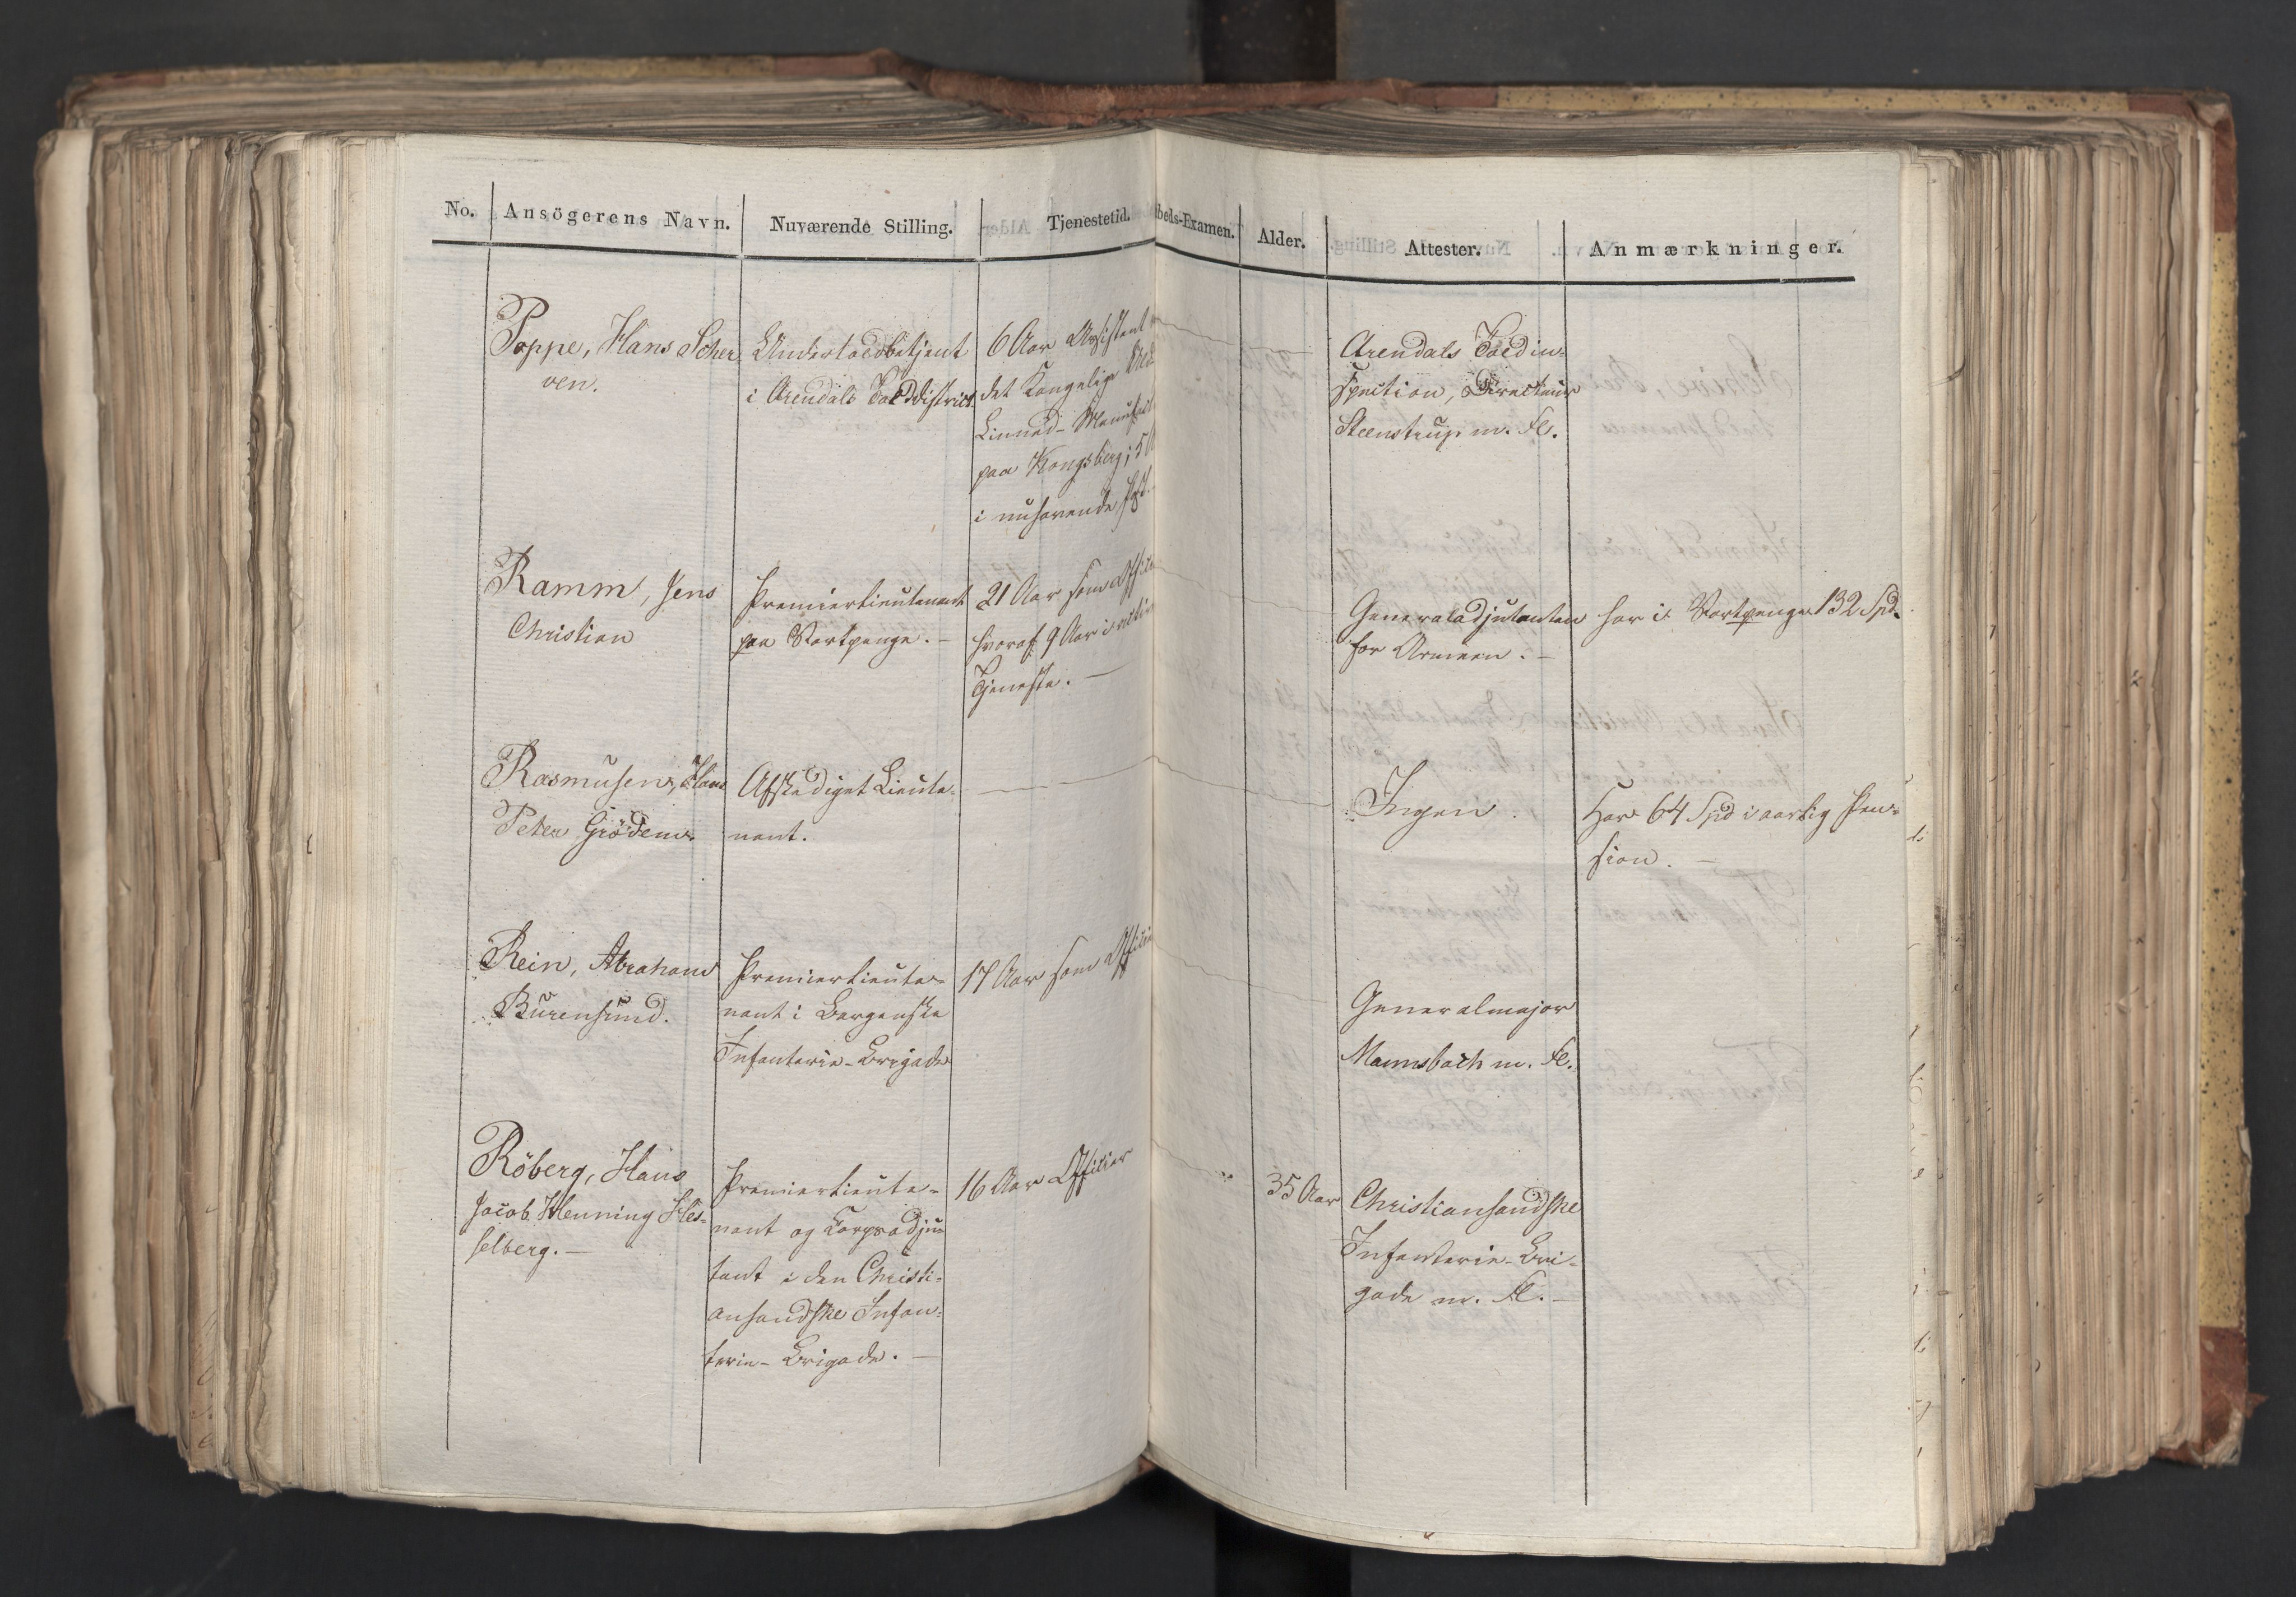 No. Ansögerens Navn. Nuværende Stilling. Tjenestetid. beds-Examen. Alder. Attester. Anmærkninger.
Poppe, Hans Scher
ven.
Undertoldbetjent
i Arendals Tolddistrict
6 Aar Assistent
det Kongelige
Linned-Manufact
paa Kongsberg; 5
i nuhavende Post.
Arendals Toldin-
spection, Directeur
Steenstrup m. Fl.
Ramm, Jens
Christian
Premierlieutenant
paa Vartpenge. —
21 Aar som Officier
hvoraf 9 Aar i
Tjeneste. —
Generaladjutanten
for Armeen. —
har i Vartpenge 132 Spd.
Rasmusen, Hans
Peter Grödem.
Afskediget Lieute-
nant.
Ingen.
Har 64 Spd i aarlig Pen-
sion. —
Rein, Abraham
Burensund.
Premierlieute-
nant i Bergenske
Infanterie-Brigade
17 Aar som Officier
Generalmajor
Mannsbach m. Fl.
Röberg, Hans
Jacob Henning Hes-
selberg. —
Premierlieute-
nant og Corpsadju-
tant i den Christi-
ansandske Infan-
terie-Brigade. —
16 Aar Officier
35 Aar
Christiansandske
Infanterie-Bri-
gade m. Fl. —